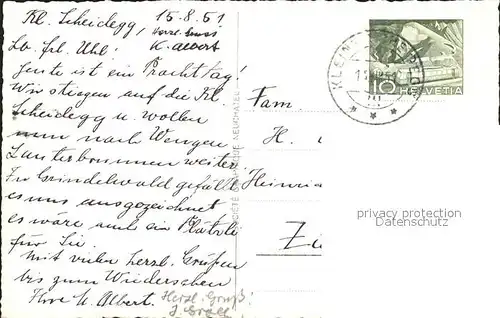 Kl. Scheidegg, 15.8.51
Lb. Frl. Uhl:
K. Albert
Heute ist ein Prachttag!
Wir stiegen auf die Kl.
Scheidegg u. wollen
nun nach Wengen
Lauterbrunnen weiter
In Grindelwald gefällt
es uns ausgezeichnet
es wäre auch ein Plätzli
für Sie.
Mit vielen herzl. Grüßen
bis zum Wiedersehen
Ihre K. Albert.
Herzl. Gruß!
Fam.
H.
Heinric
10 HELVETIA
KLEINE
privacy protection
Dummytext